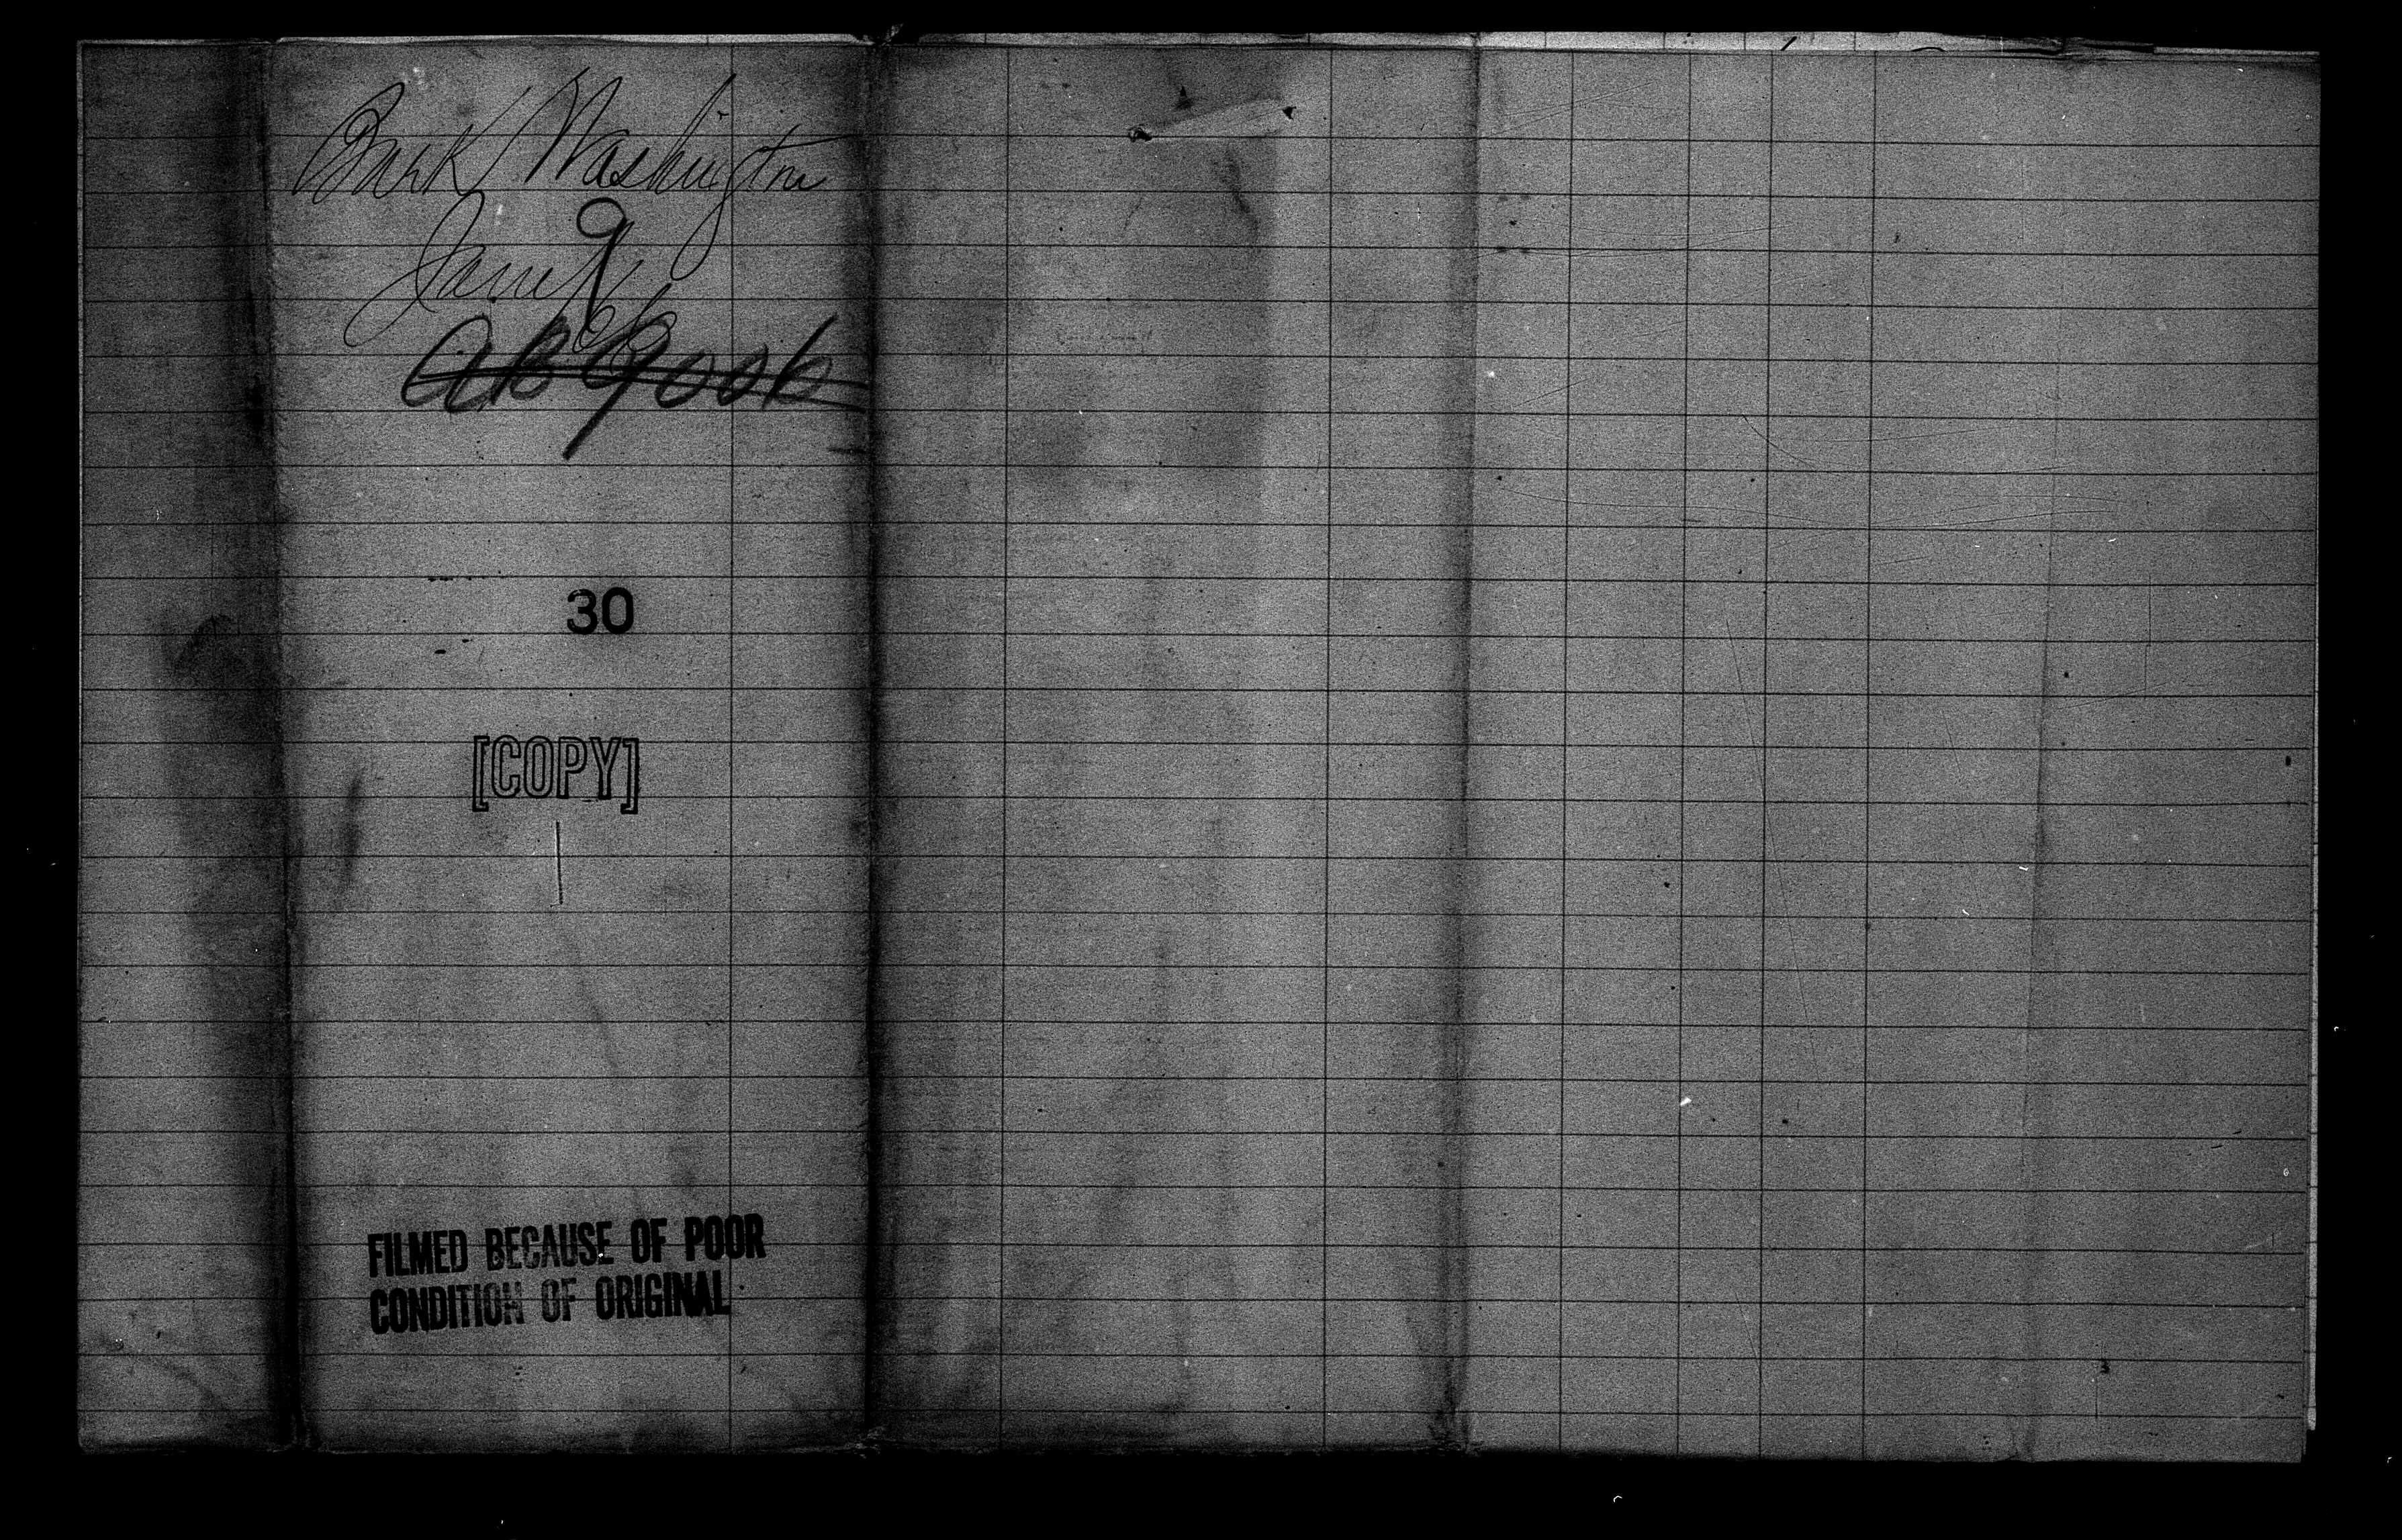 Bark Washington
9
30
[COPY]
FILMED BECAUSE OF POOR
CONDITION OF ORIGINAL